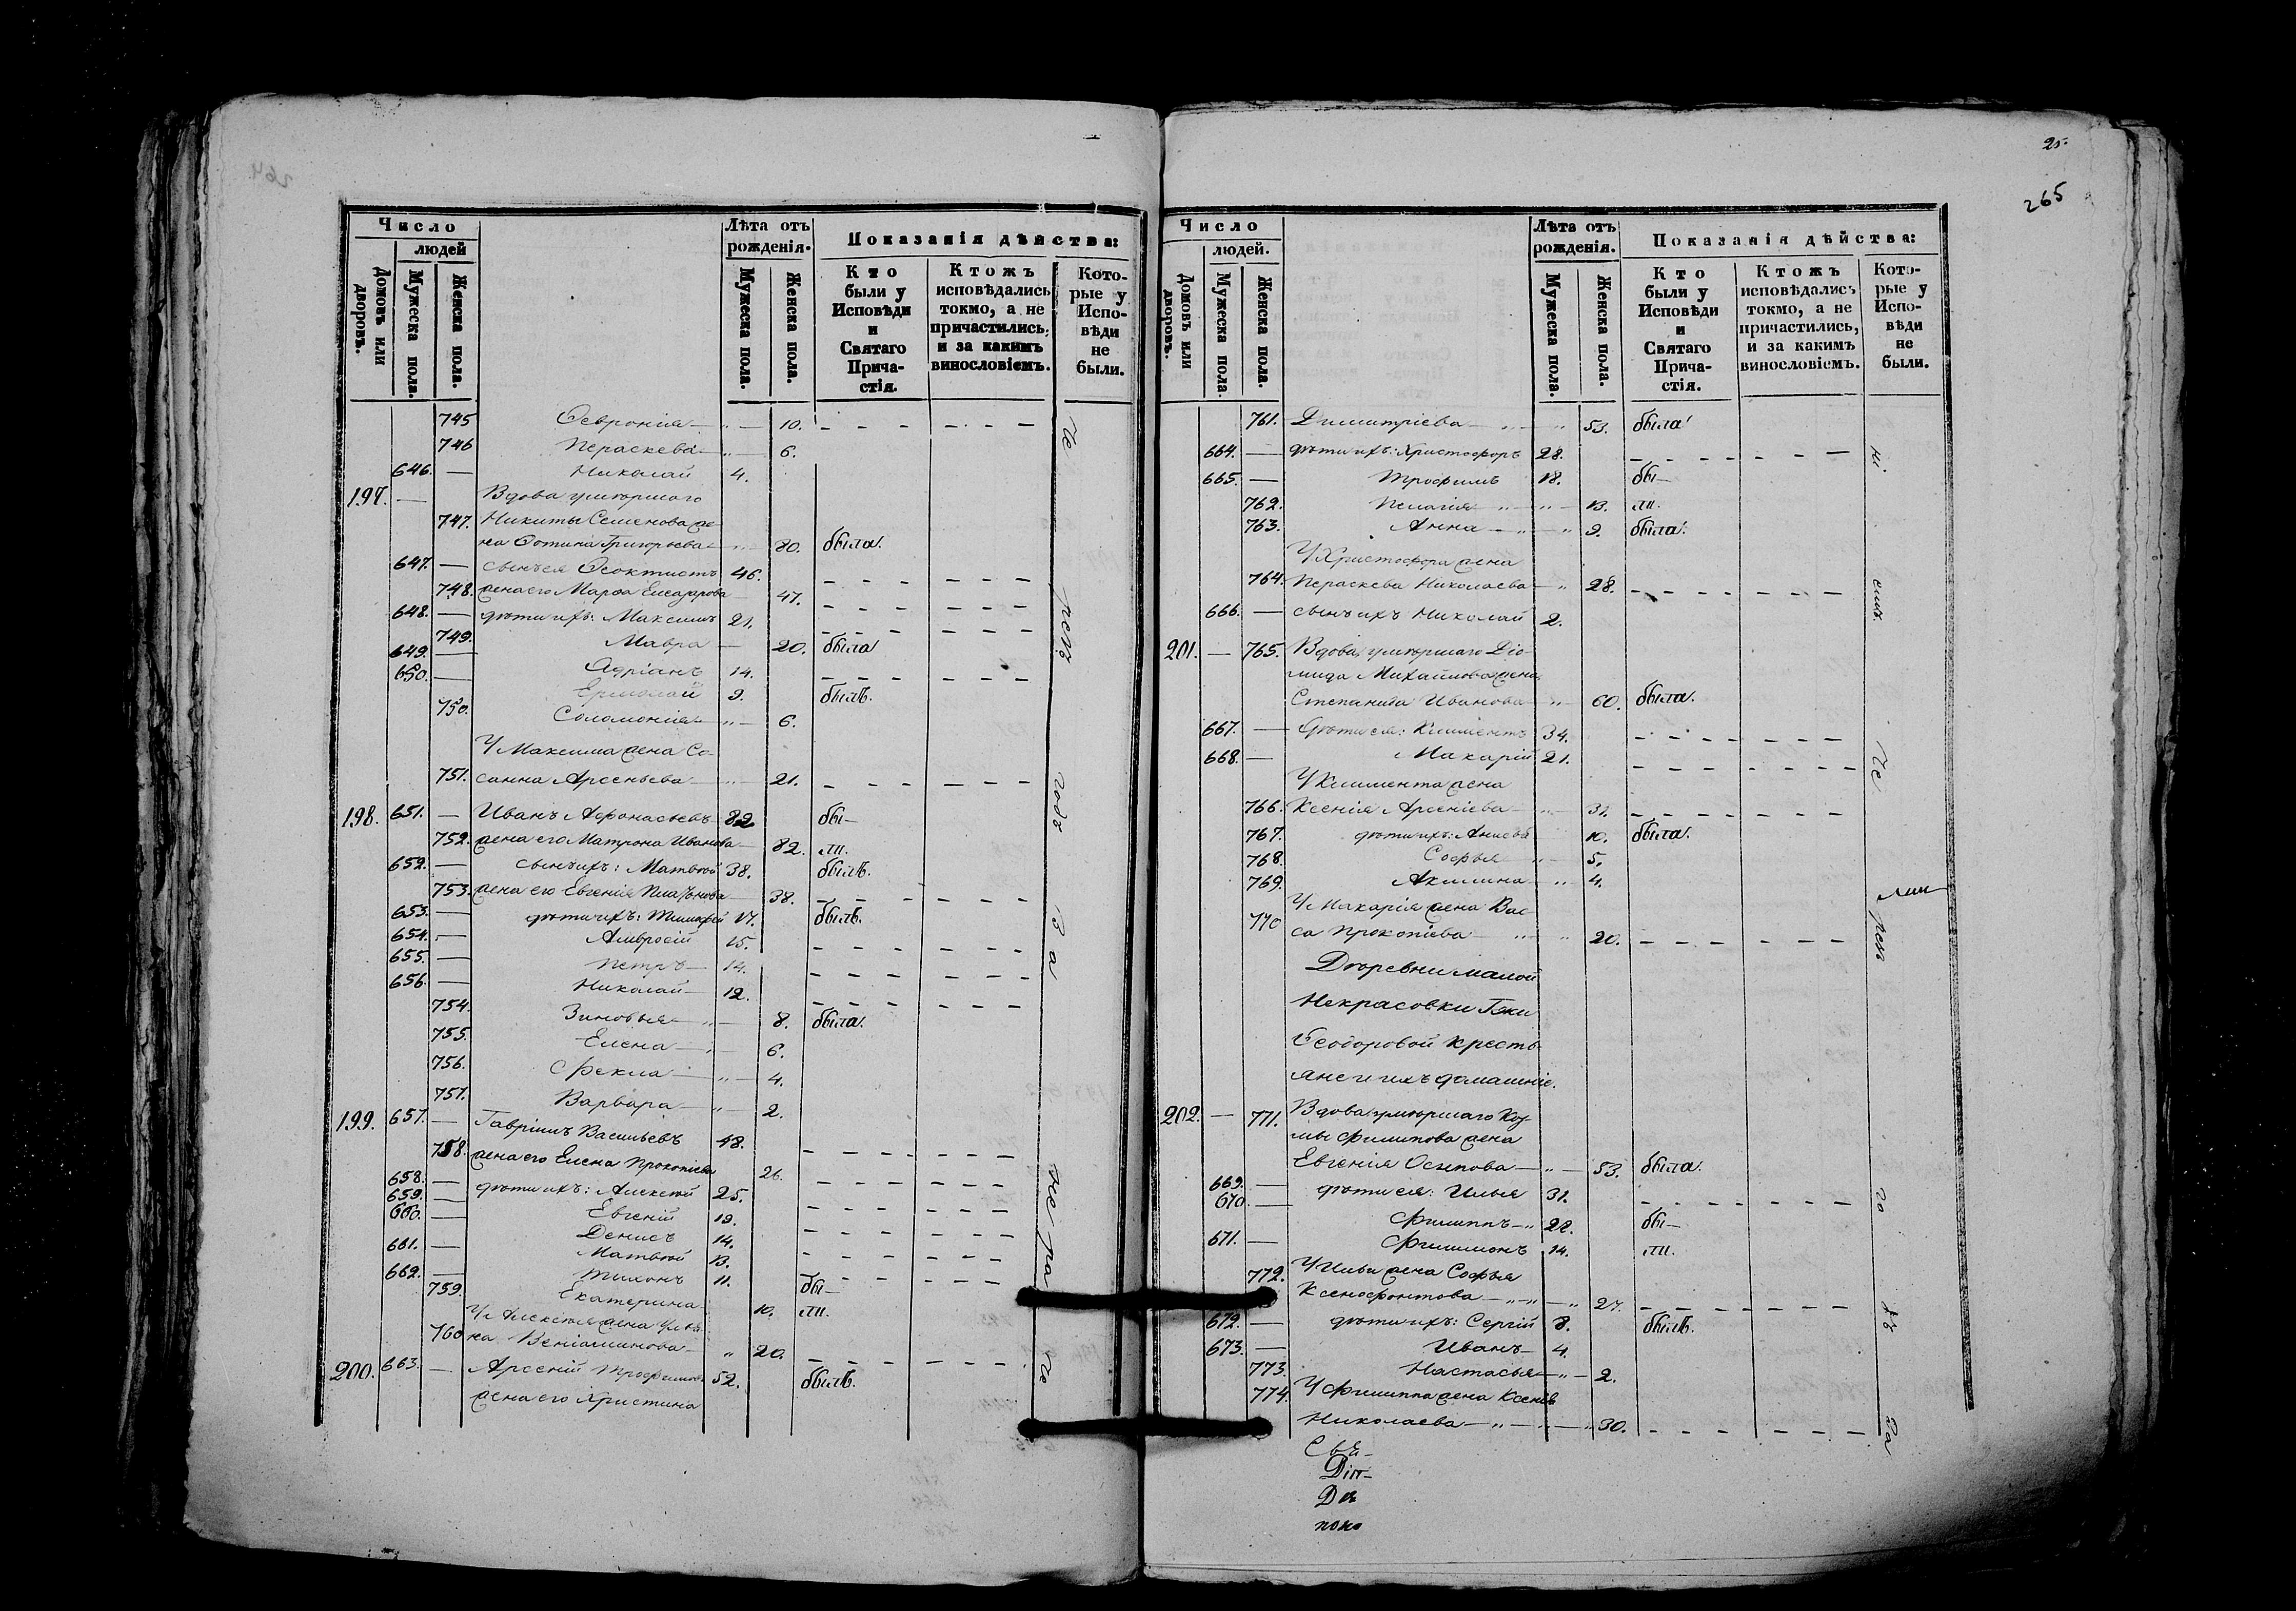 264
Число
людей
Домовъ или дворовъ.
Мужеска пола.
Женска пола.
Лѣта отъ рожденія.
Мужеска пола.
Женска пола.
Показанія дѣйства:
Кто были у Исповѣди и Святаго Прича-стія.
Ктожъ исповѣдались токмо, а не причастились, и за какимъ винословіемъ.
Кото-рые у Испо-вѣди не были.
745 Ѳевронія — 10.
746 Пераскева — 6.
646. — Николай 4.
197. — Вдова умершаго
747. Никиты Семенова же-
на Фотина Григорьева — 80. была.
647. — сынъ ея Ѳеоктистъ 46.
748. жена его Марѳа Елеазарова 47.
648. — дѣти ихъ: Максимъ 21.
749. Мавра — 20. была
649. — Адріанъ 14.
650. — Ермолай 9. былъ.
750. Соломонія — 6.
У Максима жена Со-
751. санна Арсеньева — 21.
198. 651. — Иванъ Афонасьевъ 82 бы-
752. жена его Матрона Иванова 82. ли.
652. — сынъ ихъ: Матвѣй 38. былъ.
753. жена его Евгенія Платонова 38.
653. — дѣти ихъ: Тимофей 17. былъ.
654. — Амвросій 15.
655. — Петръ — 14.
656. — Николай — 12.
754. Зиновья — 8. была.
755. Елена — 6.
756. Фекла — 4.
757. Варвара — 2.
199. 657. — Гавріилъ Васильевъ 48.
758. жена его Елена Прокопіева 26.
658. — дѣти ихъ: Алексѣй 25.
659. — Евгеній 19.
660. — Денисъ 14.
661. — Матвѣй 13.
662. — Тихонъ 11. бы-
759. Екатерина 10. ли.
У Алексѣя жена Улья-
760 на Веніаминова — 20.
200. 663. — Арсеній Трофимовъ 52. былъ.
жена его Христина
не
резъ
годъ
За
не ра
че
25.
265
Число
людей.
Домовъ или дворовъ.
Мужеска пола.
Женска пола.
Лѣта отъ рожденія.
Мужеска пола.
Женска пола.
Показанія дѣйства:
Кто были у Исповѣди и Святаго Прича-стія.
Ктожъ исповѣдались токмо, а не причастились, и за какимъ винословіемъ.
Кото-рые у Испо-вѣди не были.
761. Димитріева — 53. была
664. — дѣти ихъ: Христофоръ 28.
665. — Трофимъ 18. бы-
762. Пелагія — 13. ли.
763. Анна — 9. была.
У Христофора жена
764. Пераскева Николаева — 28.
666. — сынъ ихъ Николай 2.
201. — 765. Вдова умершаго Діо-
мида Михайлова жена
Степанида Иванова — 60. была.
667. — дѣти ея: Климентъ 34.
668. — Макарій 21.
У Климента жена
766. Ксенія Арсеніева — 31.
767. дѣти ихъ: Анисья 10. была.
768. Софья 5.
769. Акилина — 4.
У Макарія жена Вас-
770 са Прокопіева — 20.
Деревни малой
Некрасовки Гжи
Ѳеодоровой кресть-
яне и ихъ домашніе.
202. — 771. Вдова умершаго Коз-
мы Филипова жена
Евгенія Осипова — 53. была.
669. — дѣти ея: Илья 31.
670. — Филиппъ — 22. бы-
671. — Филимонъ 14. ли.
772. У Ильи жена Софья
Ксенофонтова — 27.
672. — дѣти ихъ: Сергій 8. былъ.
673. — Иванъ — 4.
773. Настасья — 2.
774. У Филиппа жена Ксенія
Николаева — 30.
ні
емъ.
Че
резъ
го
дъ
За
Свя-
Діп-